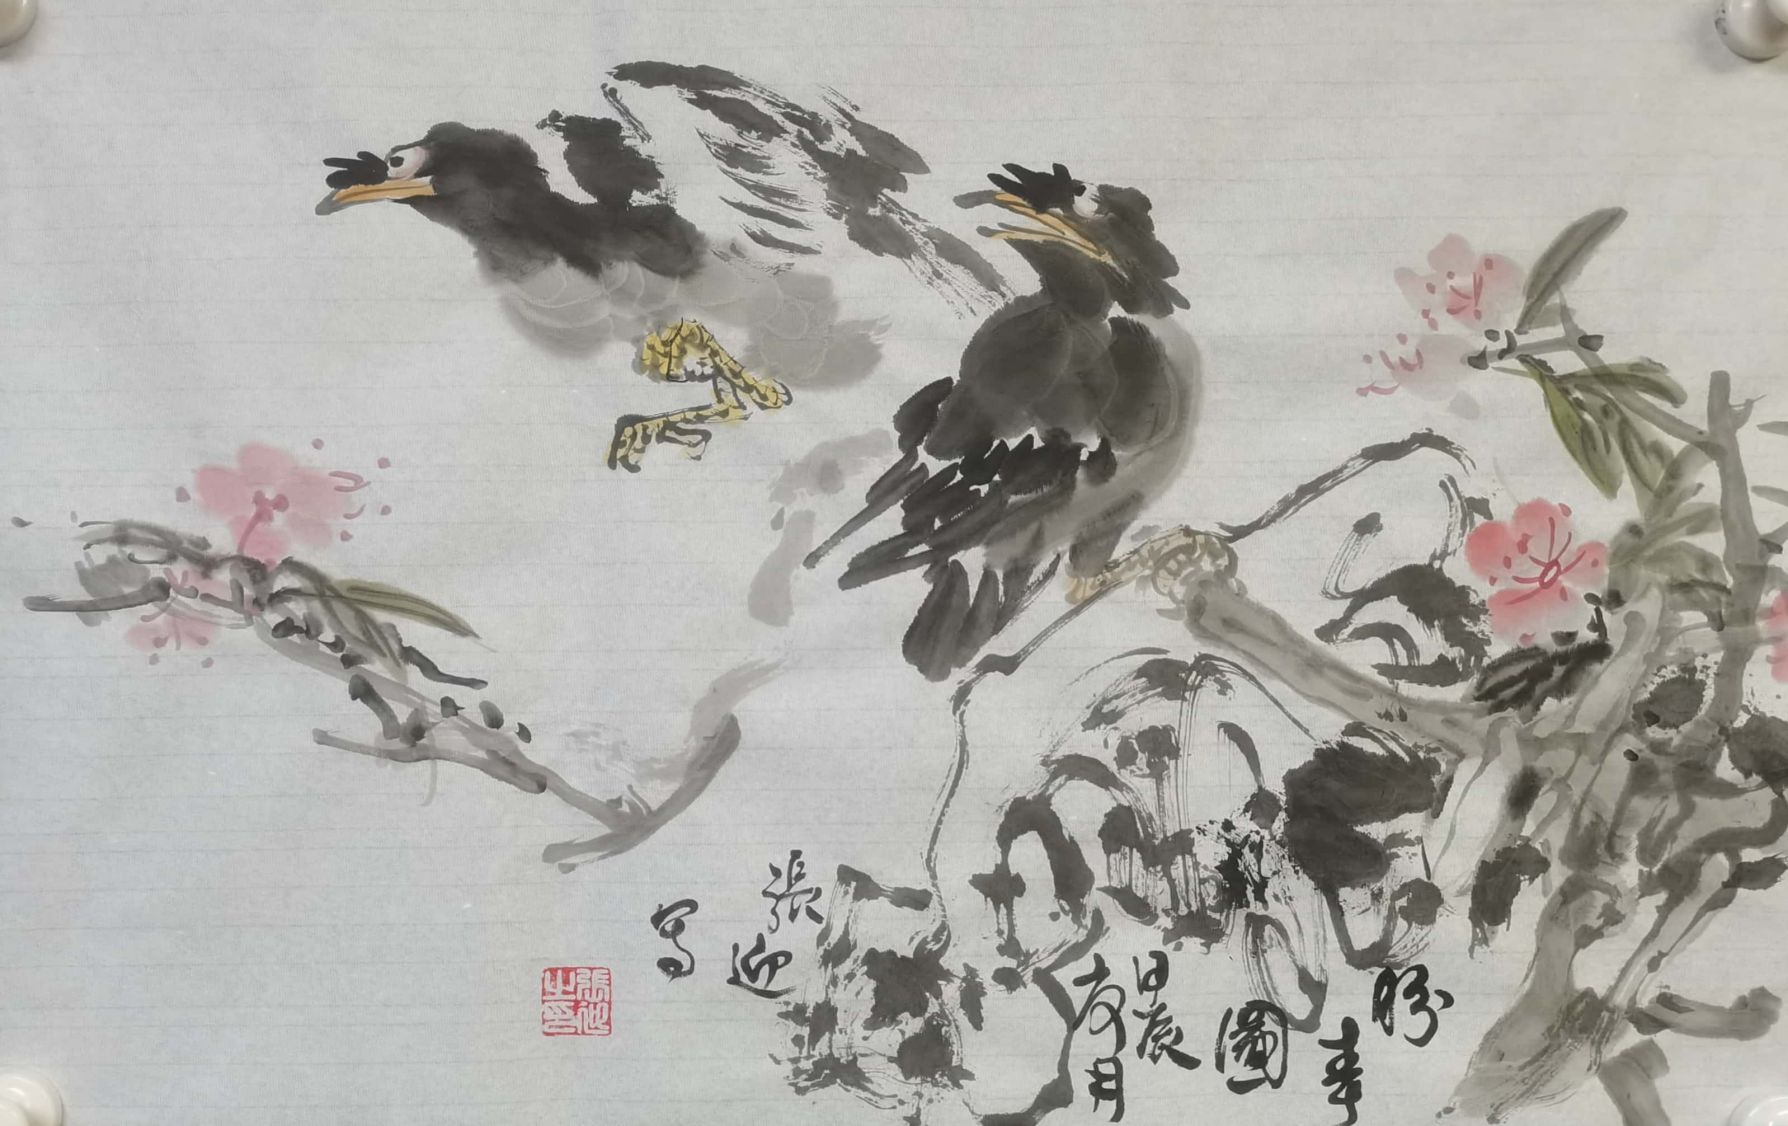 盼春圖
甲辰
月
張迎
寫
張迎之印